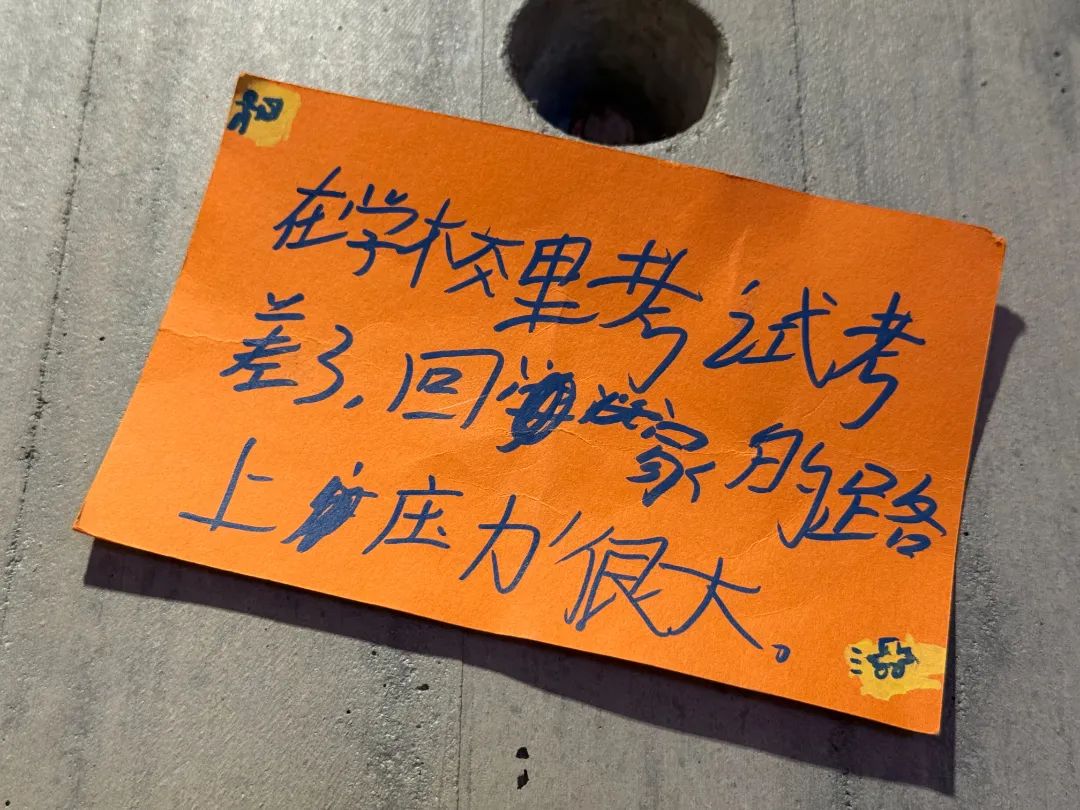 在学校里考试考
差了,回家的路
上压力很大。